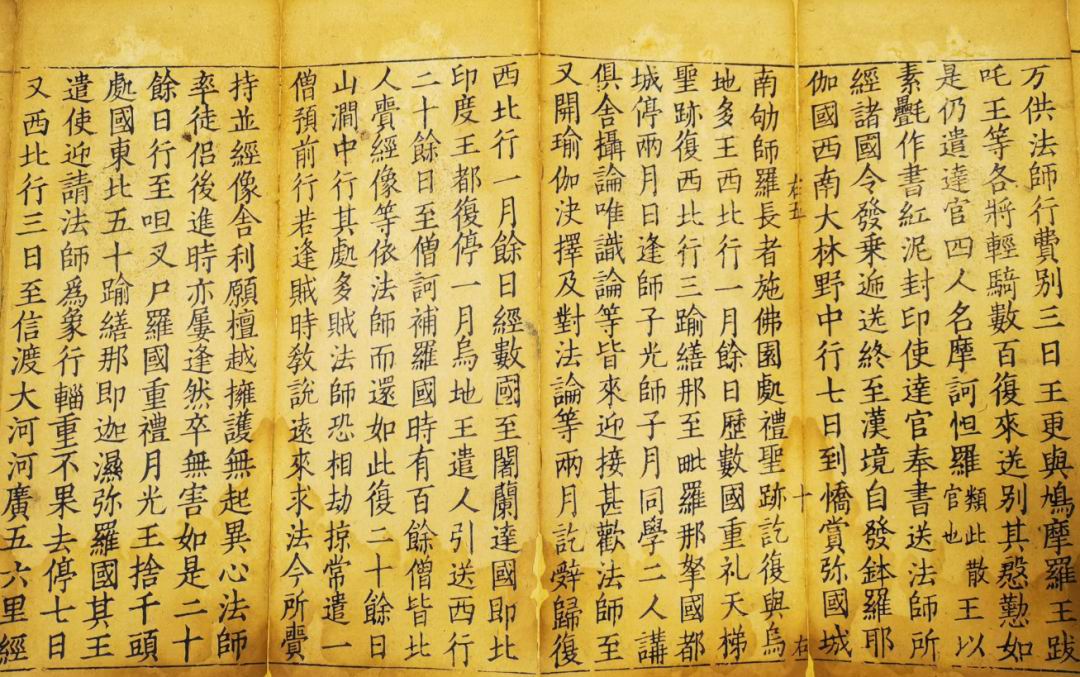 万供法師行費別三日王更與鳩摩羅王跋
吒王等各將輕騎數百復來送別其慇懃如
是仍遣達官四人名摩訶怛羅類此散官也王以
素疊作書紅泥封印使達官奉書送法師所
經諸國令發乗逓送終至漢境自發鉢羅耶
伽國西南大林野中行七日到憍賞弥國城
右五 十 右
南劬師羅長者施佛園處禮聖跡訖復與烏
地多王西北行一月餘日歷數國重礼天梯
聖跡復西北行三踰繕那至毗羅那拏國都
城停兩月日逢師子光師子月同學二人講
俱舍攝論唯識論等皆來迎接甚歡法師至
又開瑜伽決擇及對法論等兩月訖辝歸復
西北行一月餘日經數國至闍蘭達國即北
印度王都復停一月烏地王遣人引送西行
二十餘日至僧訶補羅國時有百餘僧皆北
人賷經像等依法師而還如此復二十餘日
山澗中行其處多賊法師恐相劫掠常遣一
僧預前行若逢賊時教說遠來求法今所賷
持並經像舍利願檀越擁護無起異心法師
率徒侶後進時亦屢逢然卒無害如是二十
餘日行至呾叉尸羅國重禮月光王捨千頭
處國東北五十踰繕那即迦濕弥羅國其王
遣使迎請法師為象行輜重不果去停七日
又西北行三日至信渡大河河廣五六里經